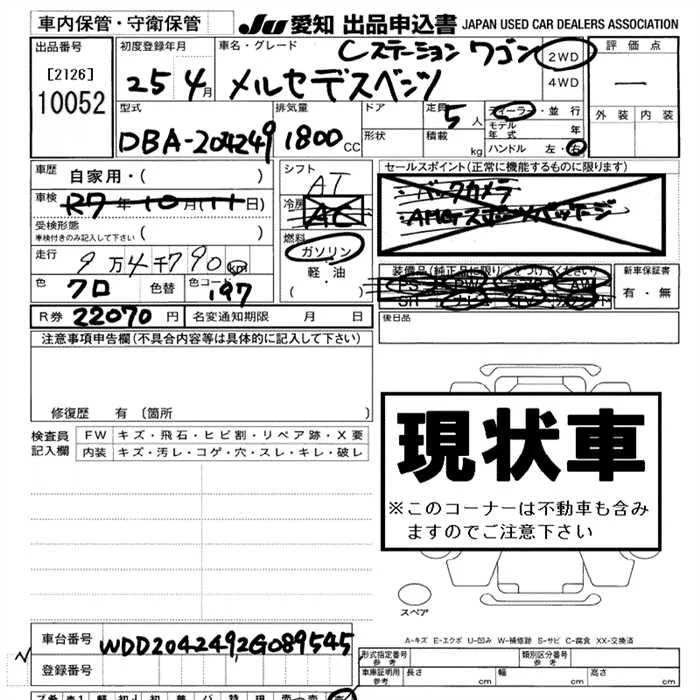 車内保管・守衛保管
JU 愛知 出品申込書 JAPAN USED CAR DEALERS ASSOCIATION
出品番号
[2126]
10052
初度登録年月
25 4月
車名・グレード
Cステーション ワゴン
メルセデスベンツ
2WD
4WD
評価点
一
外装 内装
型式
DBA-204249
排気量
1800 CC
ドア
形状
定員
5人
積載 kg
ディーラー・並行
モデル年式 年
ハンドル 左・右
車歴 自家用・( )
車検 R7年10月(11日)
受検形態
車検付きのみ記入して下さい ( )
走行 9万4千790km
色 クロ 色替 色コード 197
シフト
AT
冷房
AC
燃料
ガソリン
軽油
( ・ )
セールスポイント (正常に機能するものに限ります)
バックカメラ
AMGスポーツパッケージ
新車保証書
有・無
R券 22070 円 名変通知期限 月 日
後日品
注意事項申告欄(不具合内容等は具体的に記入して下さい)
修復歴 有〔箇所 〕
検査員記入欄
FW キズ・飛石・ヒビ割・リペア跡・X要
内装 キズ・汚レ・コゲ・穴・スレ・キレ・破レ
現状車
※このコーナーは不動車も含みますのでご注意下さい
スペア
A-キズ E-エクボ U-凹み W-補修跡 S-サビ C-腐食 XX-交換済
車台番号 WDD2042492G089545
登録番号
形式指定番号 参考
類別区分番号 参考
車庫証明用 参考 長さ cm 幅 cm 高さ cm